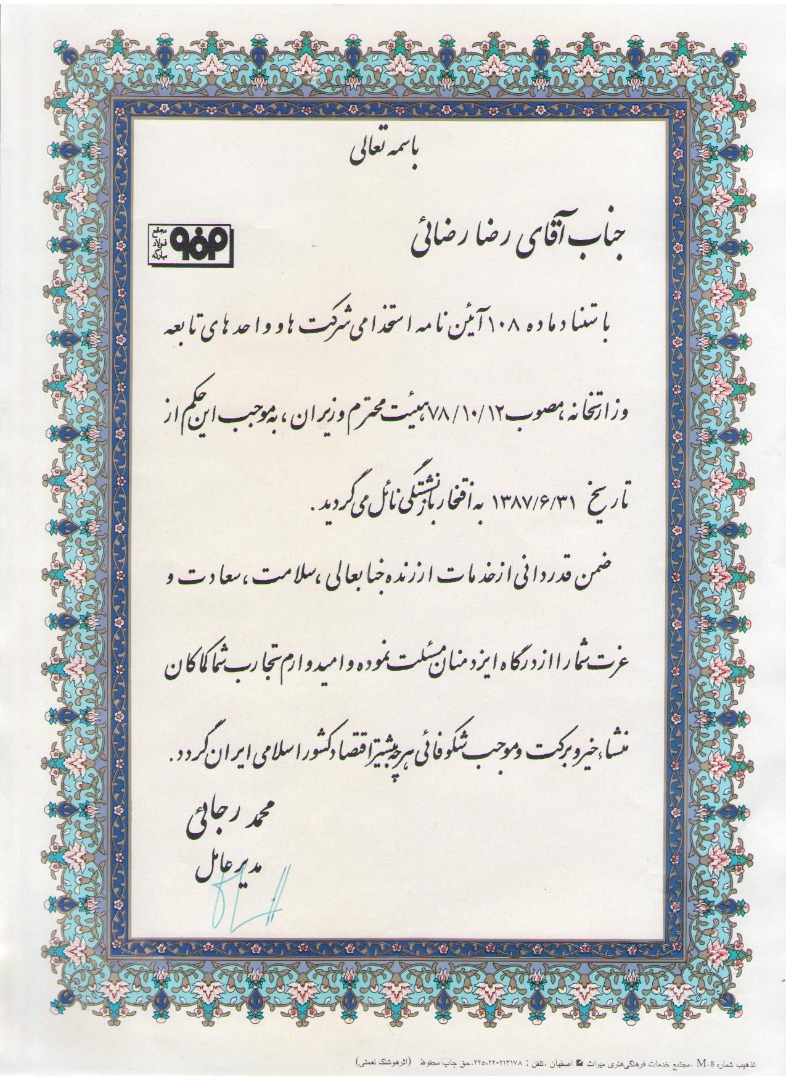 باسمه تعالی
جناب آقای رضا رضائی
مجتمع
فولاد
مبارکه
باستناد ماده ۱۰۸ آئین نامه استخدامی شرکت ها و واحد های تابعه
وزارتخانه، مصوب ۷۸/۱۰/۱۲ هیئت محترم وزیران ، به موجب این حکم از
تاریخ ۱۳۸۷/۶/۳۱ به افتخار بازنشستگی نائل می گردید .
ضمن قدردانی از خدمات ارزنده جنابعالی ، سلامت ، سعادت و
عزت شما را از درگاه ایزد منان مسئلت نموده و امیدوارم تجارب شما کماکان
منشاء خیر و برکت و موجب شکوفائی هر چه بیشتر اقتصاد کشور اسلامی ایران گردد .
محمد رجائی
مدیر عامل
تذهیب شماره M-8 ، مجتمع خدمات فرهنگی هنری میراث اصفهان ، تلفن : ۲۱۳۱۷۸-۲۲۵۰۲۲، حق چاپ محفوظ (اثر هوشنگ نعمتی)